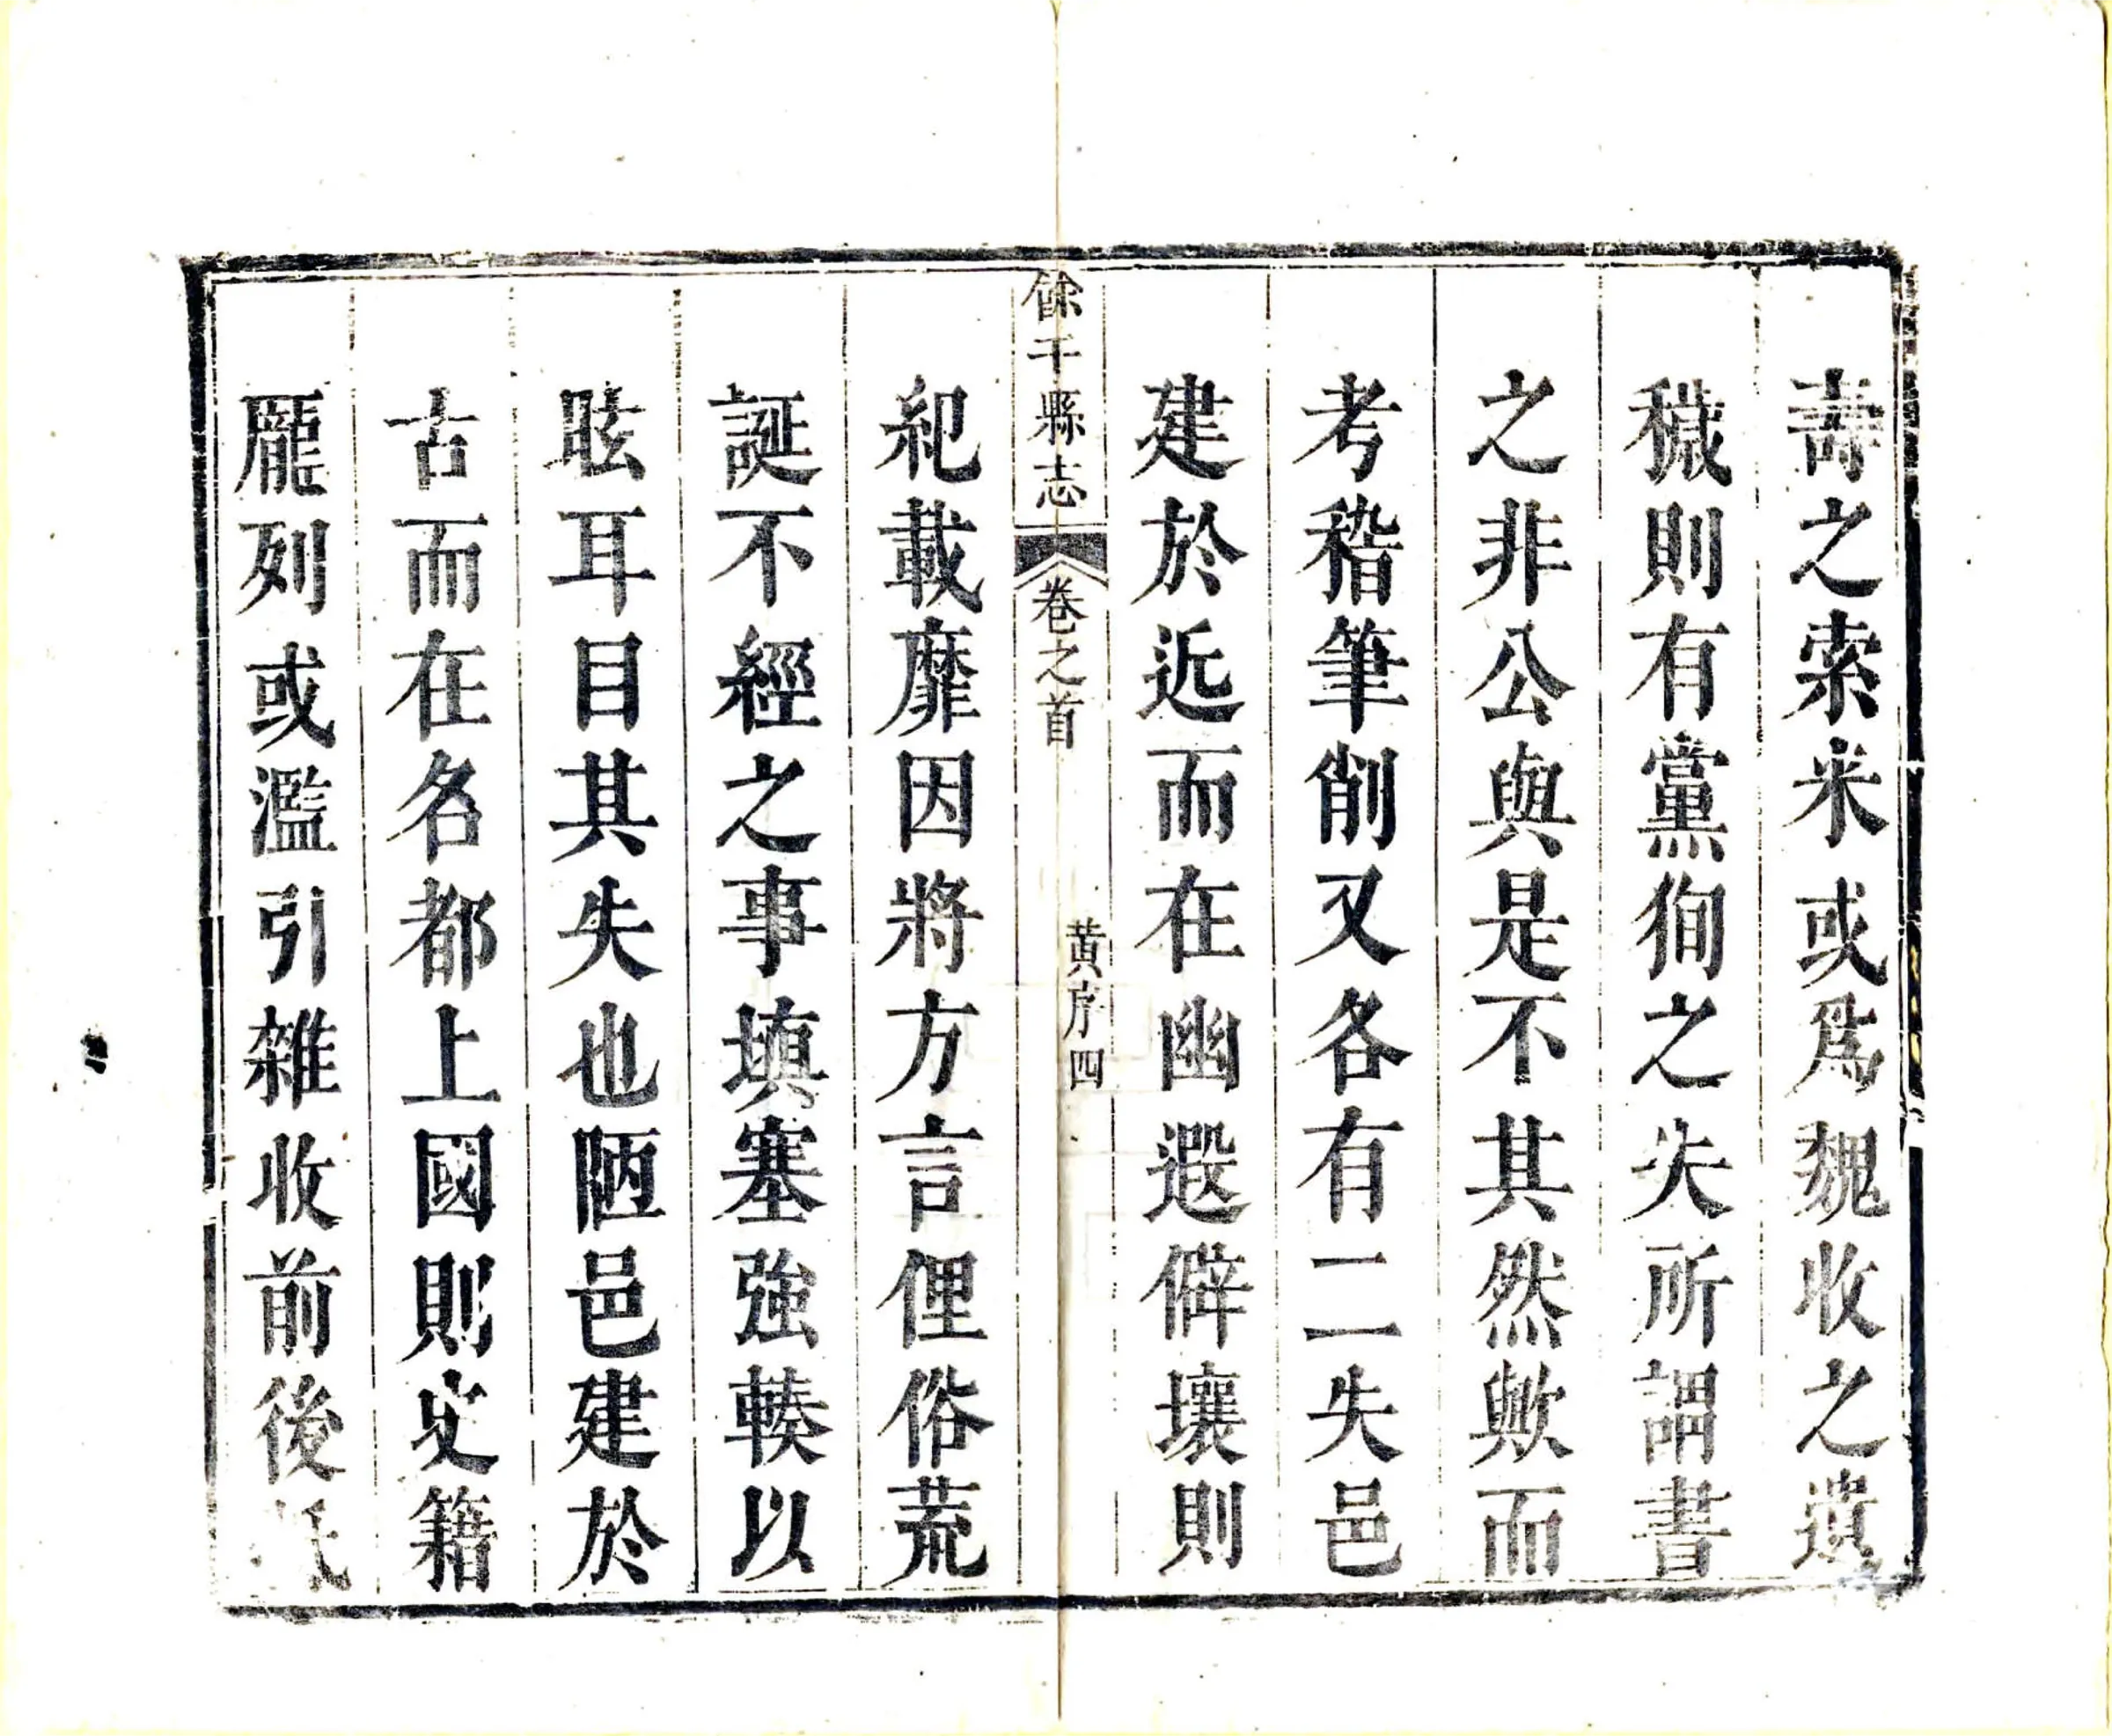 壽之索米或爲魏收之遺
穢則有黨狥之失所謂書
之非公與是不其然歟而
考稽筆削又各有二失邑
建於近而在幽遐僻壤則
餘干縣志 卷之首 黄序四
紀載靡因將方言俚俗荒
誕不經之事填塞強輳以
眩耳目其失也陋邑建於
古而在名都上國則史籍
龎列或濫引雜收前後